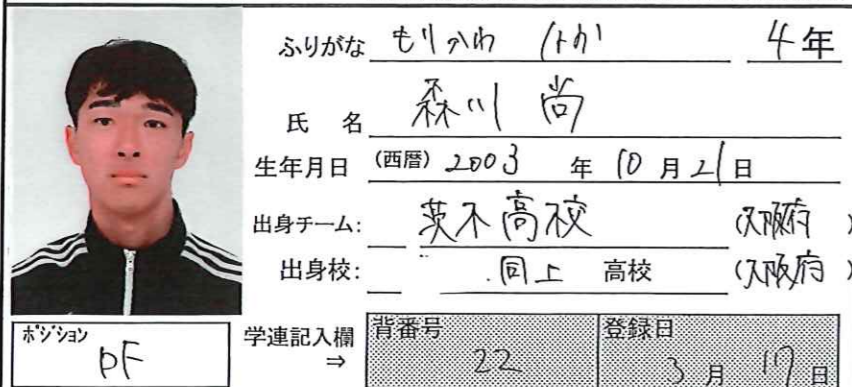 ふりがな もりかわ 4年
氏名 森川 尚
生年月日 (西暦) 2003 年 10 月 21 日
出身チーム: 茨木高校 (大阪府)
出身校: 同上 高校 (大阪府)
ポジション DF
学連記入欄 ⇒ 背番号 22 登録日 3 月 17 日